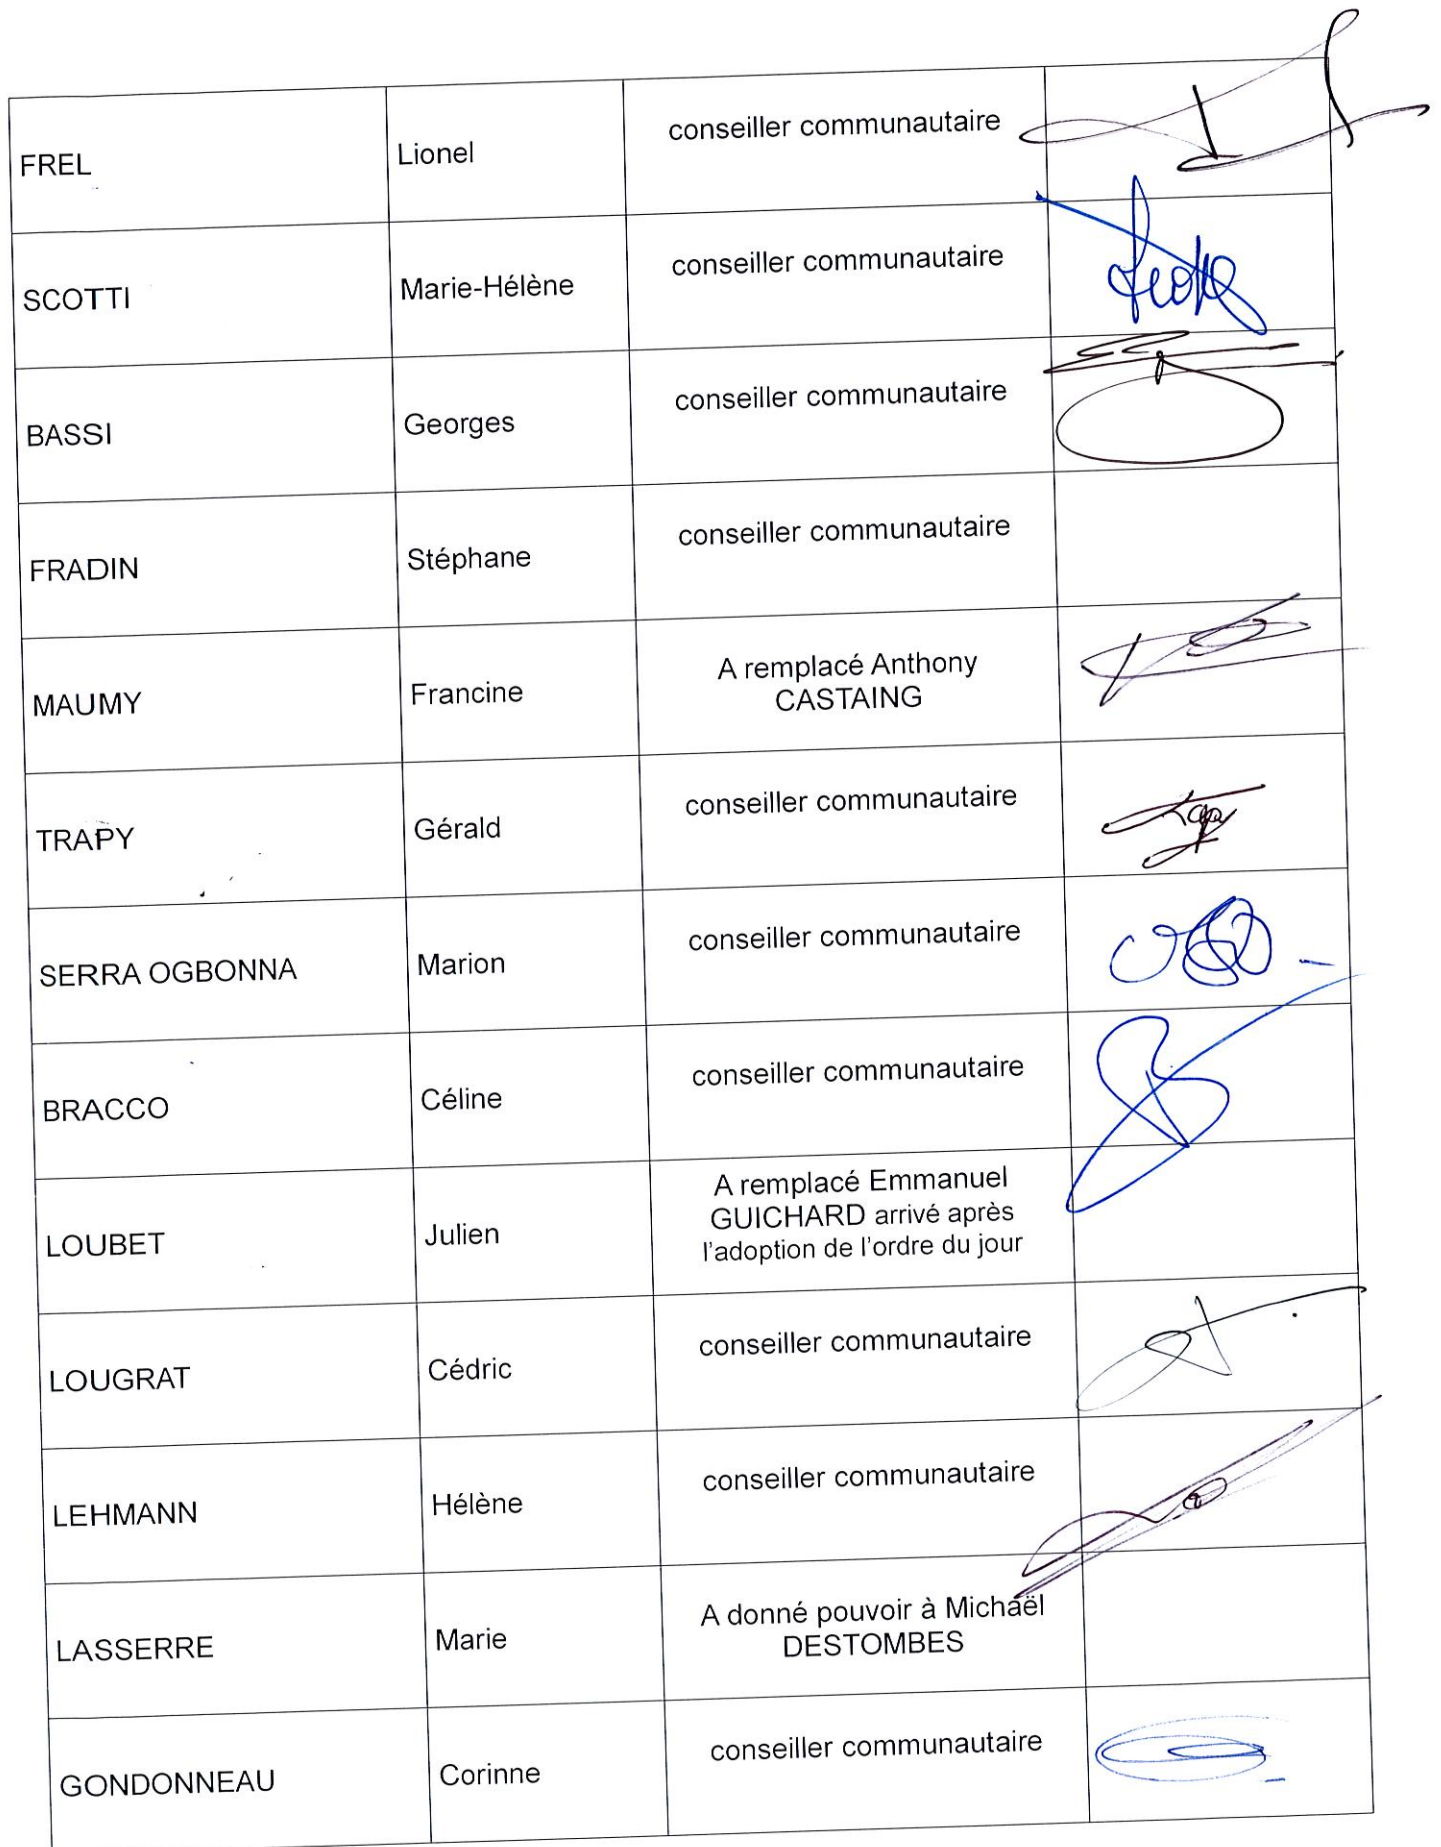 FREL Lionel conseiller communautaire
SCOTTI Marie-Hélène conseiller communautaire
BASSI Georges conseiller communautaire
FRADIN Stéphane conseiller communautaire
MAUMY Francine A remplacé Anthony
CASTAING
TRAPY Gérald conseiller communautaire
SERRA OGBONNA Marion conseiller communautaire
BRACCO Céline conseiller communautaire
LOUBET Julien A remplacé Emmanuel
GUICHARD arrivé après
l'adoption de l'ordre du jour
LOUGRAT Cédric conseiller communautaire
LEHMANN Hélène conseiller communautaire
LASSERRE Marie A donné pouvoir à Michaël
DESTOMBES
GONDONNEAU Corinne conseiller communautaire